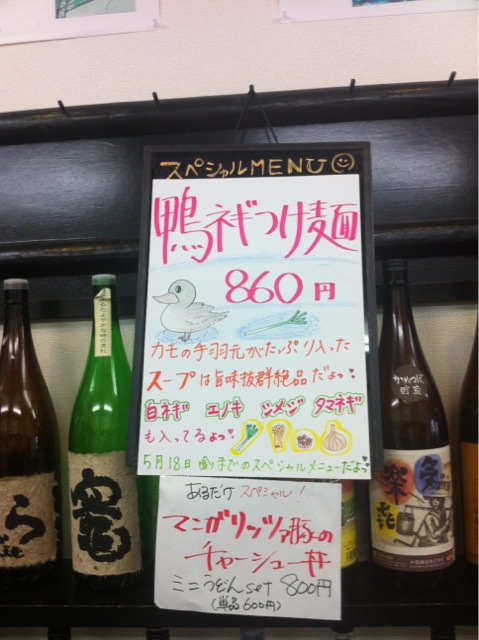 スペシャルMENU
鴨ネギつけ麺
860円
カモの手羽元がたっぷり入った
スープは旨味抜群絶品だよっ
白ネギ エノキ シメジ タマネギ
も入ってるよっ
5月18日(金)までのスペシャルメニューだよっ
あるだけスペシャル!
マンガリッツァ豚の
チャーシュー丼
ミニうどんset 800円
(単品600円)